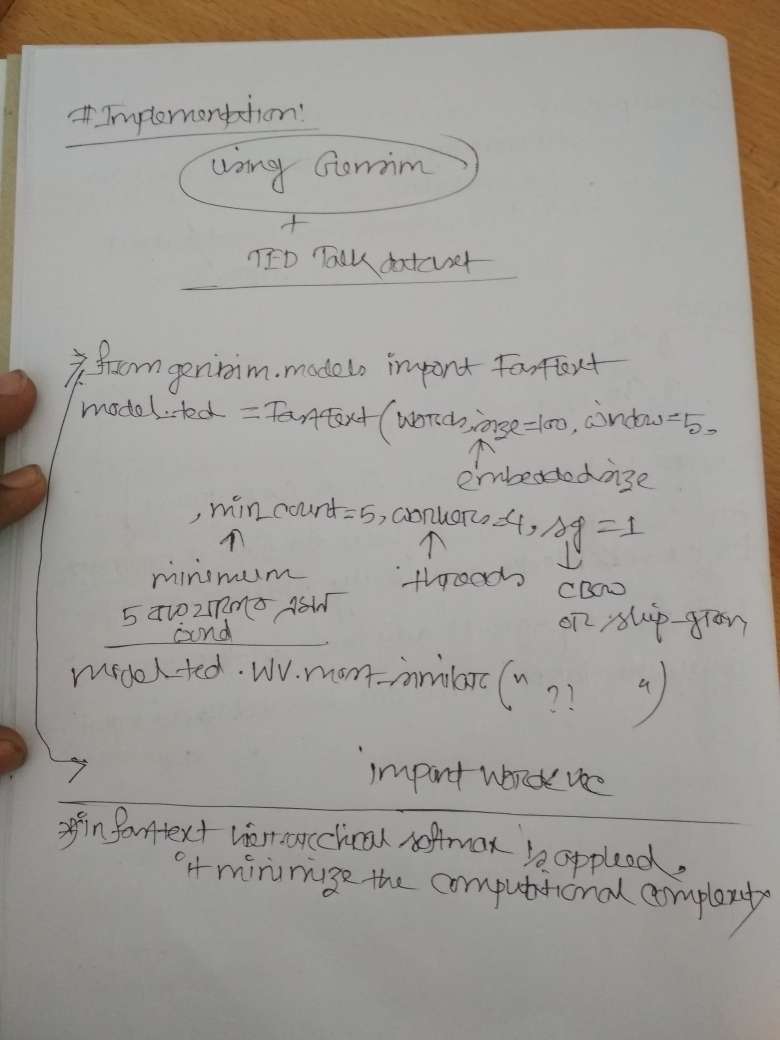 # Implementation:
using Gensim
+
TED Talk dataset
from gensim.models import FastText
model_ted = FastText(words, size=100, window=5,
embedded size
, min_count=5, workers=4, sg=1
minimum threads CBOW
5 বার থাকতে or skip-gram
model_ted.wv.most_similar(" ?! ")
import word2vec
in fasttext hierarchical softmax is applied,
it minimize the computational complexity